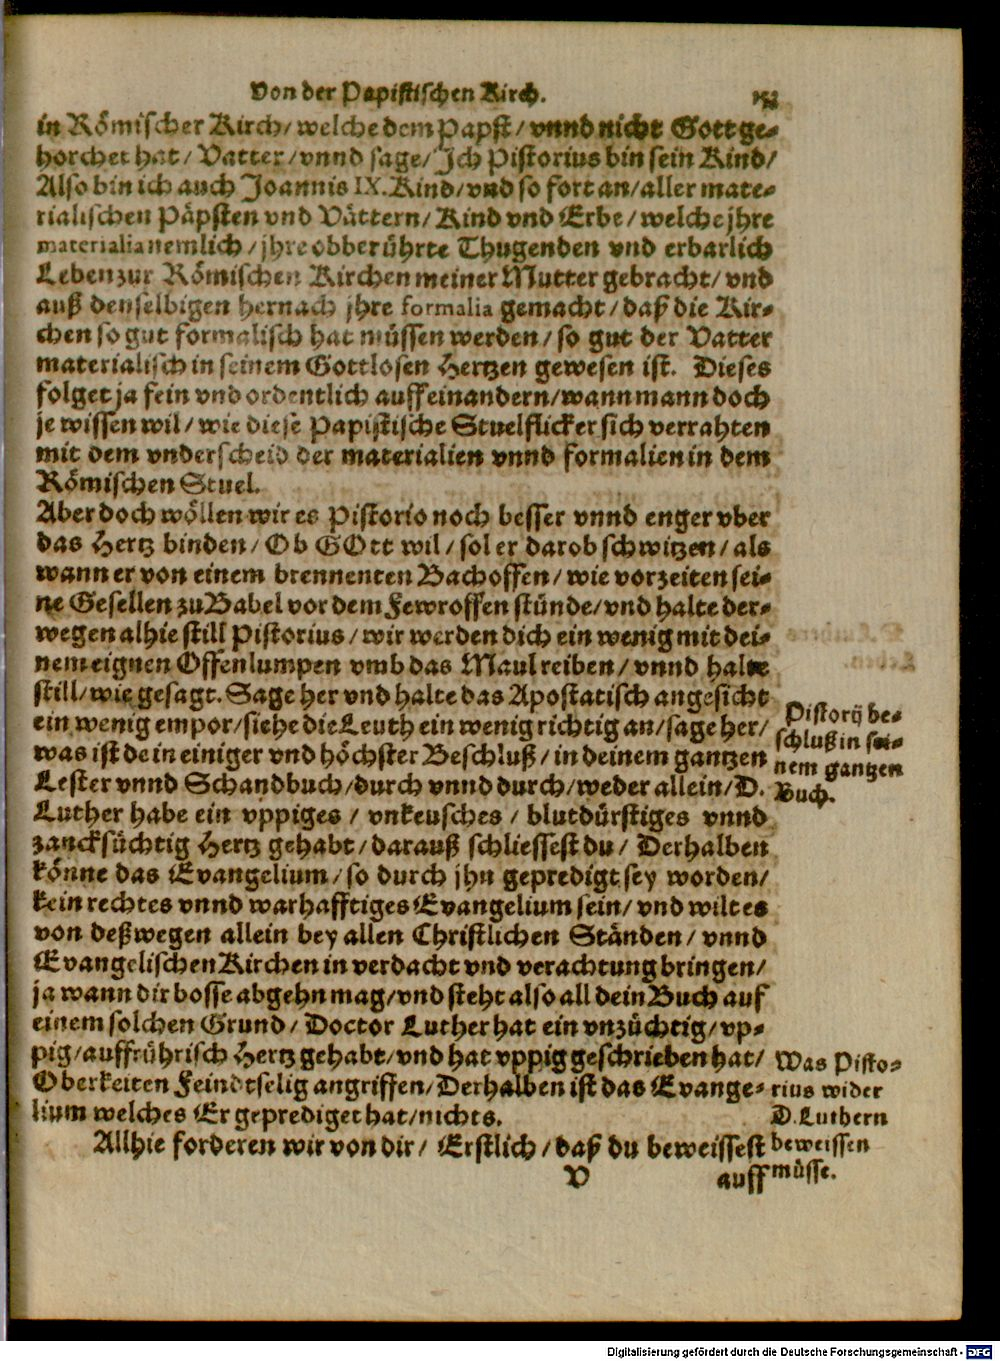 Von der Papistischen Kirch. 153
in Römischer Kirch/ welche dem Papst/ vnnd nicht Gott ge-
horchet hat/ Vatter/ vnnd sage/ Ich Pistorius bin sein Kind/
Also bin ich auch Joannis IX. Kind/ vnd so fort an/ aller mate-
rialischen Päpsten vnd Vättern/ Kind vnd Erbe/ welche jhre
materialia nemlich/ jhre obberührte Thugenden vnd erbarlich
Leben zur Römischen Kirchen meiner Mutter gebracht/ vnd
auß denselbigen hernach jhre formalia gemacht/ daß die Kir-
chen so gut formalisch hat müssen werden/ so gut der Vatter
materialisch in seinem Gottlosen Hertzen gewesen ist. Dieses
folget ja fein vnd ordentlich auff einandern/ wann mann doch
je wissen wil/ wie diese Papistische Stuelflicker sich verrahten
mit dem vnderscheid der materialien vnnd formalien in dem
Römischen Stuel.
Aber doch wöllen wir es Pistorio noch besser vnnd enger vber
das Hertz binden/ Ob GOtt wil/ sol er darob schwitzen/ als
wann er von einem brennenten Bachoffen/ wie vorzeiten sei-
ne Gesellen zu Babel vor dem Fewroffen stünde/ vnd halte der-
wegen alhie still Pistorius/ wir werden dich ein wenig mit dei-
nem eignen Offenlumpen vmb das Maul reiben/ vnnd halte
still/ wie gesagt. Sage her vnd halte das Apostatisch angesicht
ein wenig empor/ siehe die Leuth ein wenig richtig an/ sage her/
was ist dein einiger vnd höchster Beschluß/ in deinem gantzen
Lester vnnd Schandbuch/ durch vnnd durch/ weder allein/ D.
Luther habe ein vppiges/ vnkeusches/ blutdürstiges vnnd
zancksüchtig Hertz gehabt/ darauß schliessest du/ Derhalben
könne das Evangelium/ so durch jhn gepredigt sey worden/
kein rechtes vnnd warhafftiges Evangelium sein/ vnd wilt es
von deßwegen allein bey allen Christlichen Ständen/ vnnd
Evangelischen Kirchen in verdacht vnd verachtung bringen/
ja wann dir bosse abgehn mag/ vnd steht also all dein Buch auf
einem solchen Grund/ Doctor Luther hat ein vnzüchtig/ vp-
pig/ auffrührisch Hertz gehabt/ vnd hat vppig geschrieben hat/
Oberkeiten Feindtselig angriffen/ Derhalben ist das Evange-
lium welches Er geprediget hat/ nichts.
Allhie forderen wir von dir/ Erstlich/ daß du beweissest
V auff
Pistorij be-
schluß in sei-
nem gantzen
Buch.
Was Pisto-
rius wider
D. Luthern
beweissen
müsse.
Digitalisierung gefördert durch die Deutsche Forschungsgemeinschaft - DFG